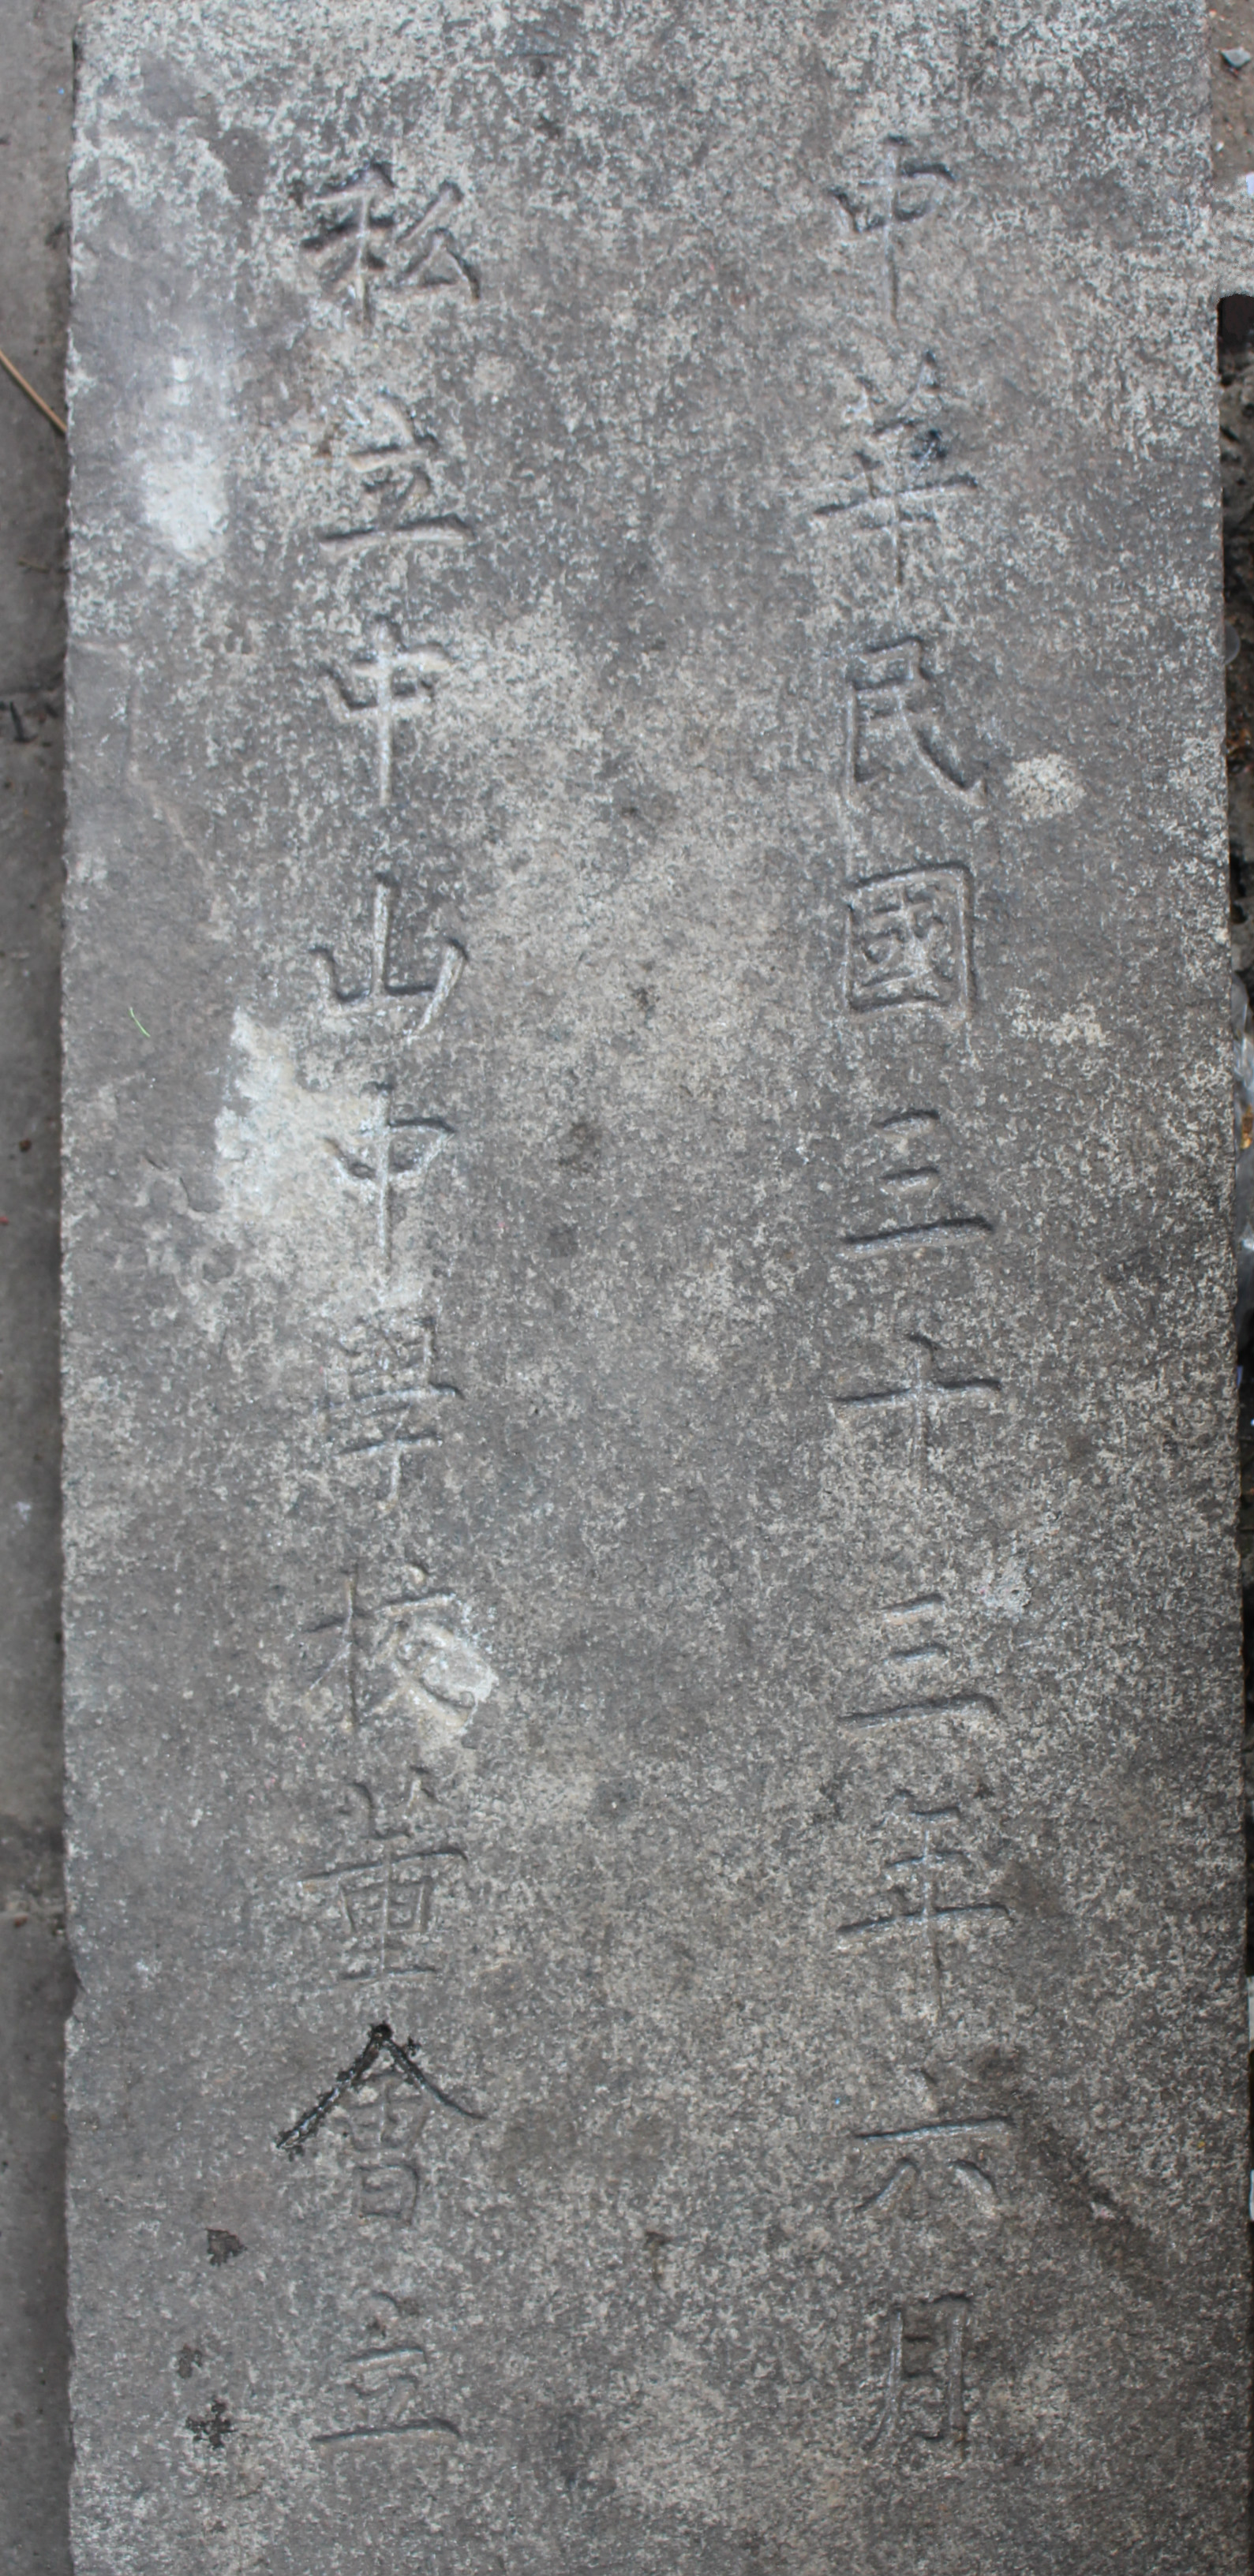 中華民國三十三年六月
私立中山中學校董會立